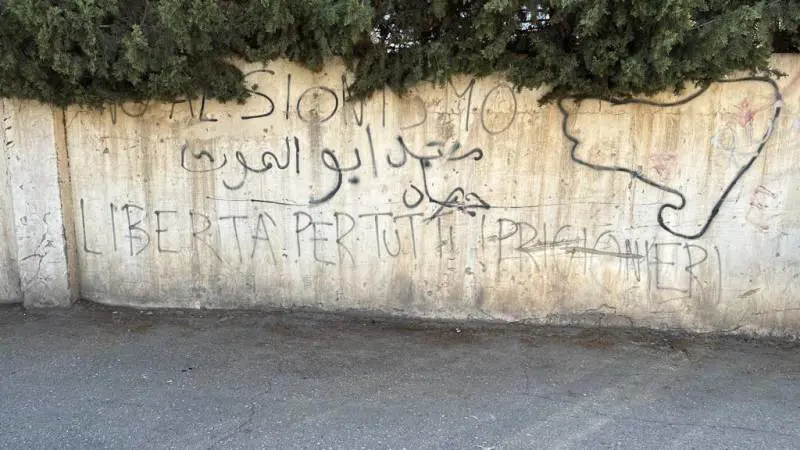 NO AL SIONISMO
معتجد ابو الموت
جهاد
LIBERTA PER TUTTI I PRIGIONIERI